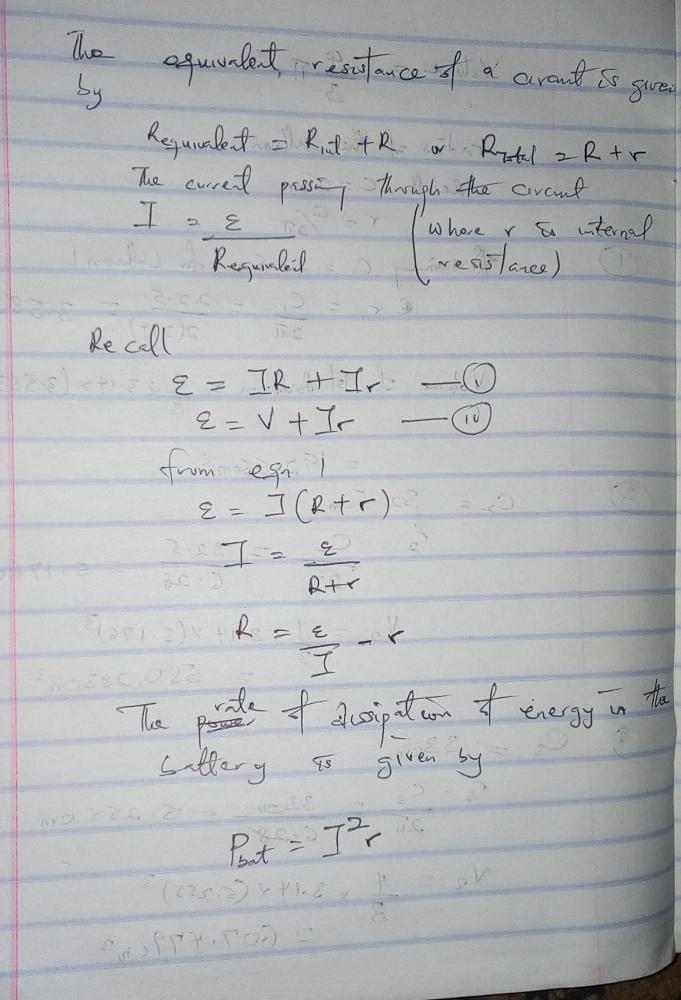 The equivalent resistance of a circuit is given
by
Requivalent = Rint + R or RTotal = R + r
The current passing through the circuit
I = ε / Requivalent (where r is internal
resistance)
Recall
ε = IR + Ir — (v)
ε = V + Ir — (iv)
from eqn 1
ε = I(R + r)
I = ε / R+r
R = ε / I - r
The rate of dissipation of energy in the
battery is given by
Pbat = I²r